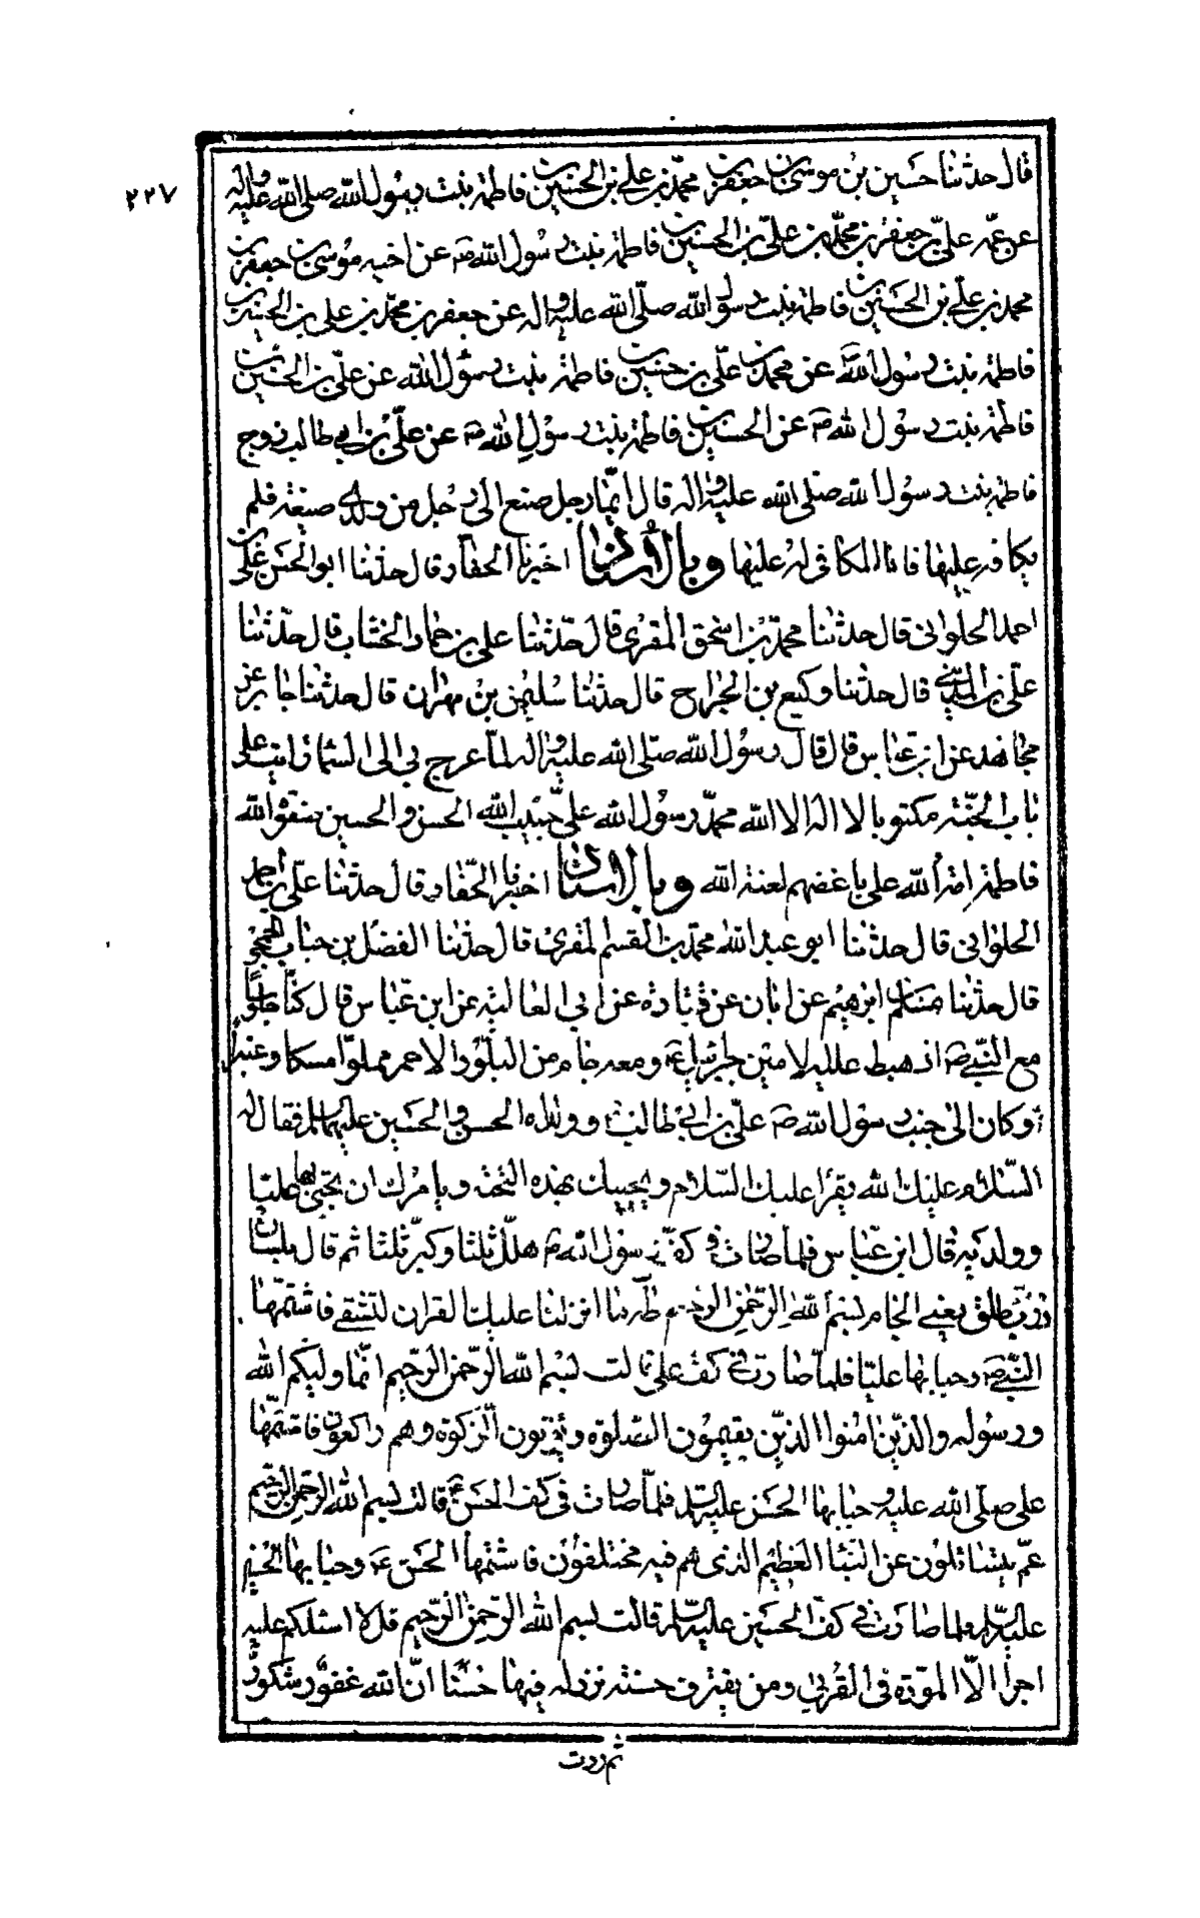 ٢٢٧
قال حدثنا حسين بن موسى بن جعفر بن محمد بن علي بن الحسين بن فاطمة بنت رسول الله صلى الله عليه واله
عن عمه علي بن جعفر بن محمد بن علي بن الحسين بن فاطمة بنت رسول الله ص عن اخيه موسى بن جعفر بن
محمد بن علي بن الحسين بن فاطمة بنت رسول الله صلى الله عليه واله عن جعفر بن محمد بن علي بن الحسين بن
فاطمة بنت رسول الله ص عن محمد بن علي بن حسين بن فاطمة بنت رسول الله عن علي بن الحسين بن
فاطمة بنت رسول الله ص عن الحسين بن فاطمة بنت رسول الله ص عن علي بن ابي طالب زوج
فاطمة بنت رسول الله صلى الله عليه واله قال ايما رجل صنع الى رجل من ولدي صنيعة فلم
يكافه عليها فانا المكافي له عليها وبالاسناد اخبرنا الحفار قال حدثنا ابو الحسن علي بن
احمد الحلواني قال حدثنا محمد بن اسحق المقري قال حدثنا علي بن حماد الخشاب قال حدثنا
علي بن المديني قال حدثنا وكيع بن الجراح قال حدثنا سليمن بن مهران قال حدثنا جابر عن
مجاهد عن ابن عباس قال قال رسول الله صلى الله عليه واله لما عرج بي الى السماء رايت على
باب الجنة مكتوبا لا اله الا الله محمد رسول الله علي حبيب الله الحسن والحسين صفوة الله
فاطمة امة الله على باغضهم لعنة الله وبالاسناد اخبرنا الحفار قال حدثنا علي بن احمد
الحلواني قال حدثنا ابو عبد الله محمد بن القسم المقري قال حدثنا الفضل بن حباب الجمحي
قال حدثنا مسلم بن ابرهيم عن ابان عن قتادة عن ابي العالية عن ابن عباس قال كنا جلوسا
مع النبي ص اذ هبط عليه الامين جبرئيل ع ومعه جام من البلور الاحمر مملوا مسكا وعنبرا
وكان الى جنب رسول الله ص علي بن ابي طالب ع وولداه الحسن والحسين عليهما السلم فقال له
السلام عليك الله يقرأ عليك السلام ويحييك بهذه التحية ويامرك ان تحيي بها عليا
وولديه قال ابن عباس فلما صارت في كف رسول الله ص هلل ثلثا وكبر ثلثا ثم قال بلسان
ذرب طلق يعني الجام بسم الله الرحمن الرحيم طه ما انزلنا عليك القران لتشقى فاشتمها
النبي ص وحيا بها عليا فلما صارت في كف علي قالت بسم الله الرحمن الرحيم انما وليكم الله
ورسوله والذين امنوا الذين يقيمون الصلوة ويؤتون الزكوة وهم راكعون فاشتمها
علي صلى الله عليه وحيا بها الحسن عليه السلم فلما صارت في كف الحسن ع قالت بسم الله الرحمن الرحيم
عم يتسائلون عن النبأ العظيم الذي هم فيه مختلفون فاشتمها الحسن ع وحيا بها الحسين
عليه السلم فلما صارت في كف الحسين عليه السلم قالت بسم الله الرحمن الرحيم قل لا اسئلكم عليه
اجرا الا المودة في القربى ومن يقترف حسنة نزد له فيها حسنا ان الله غفور شكور
ثم ردت